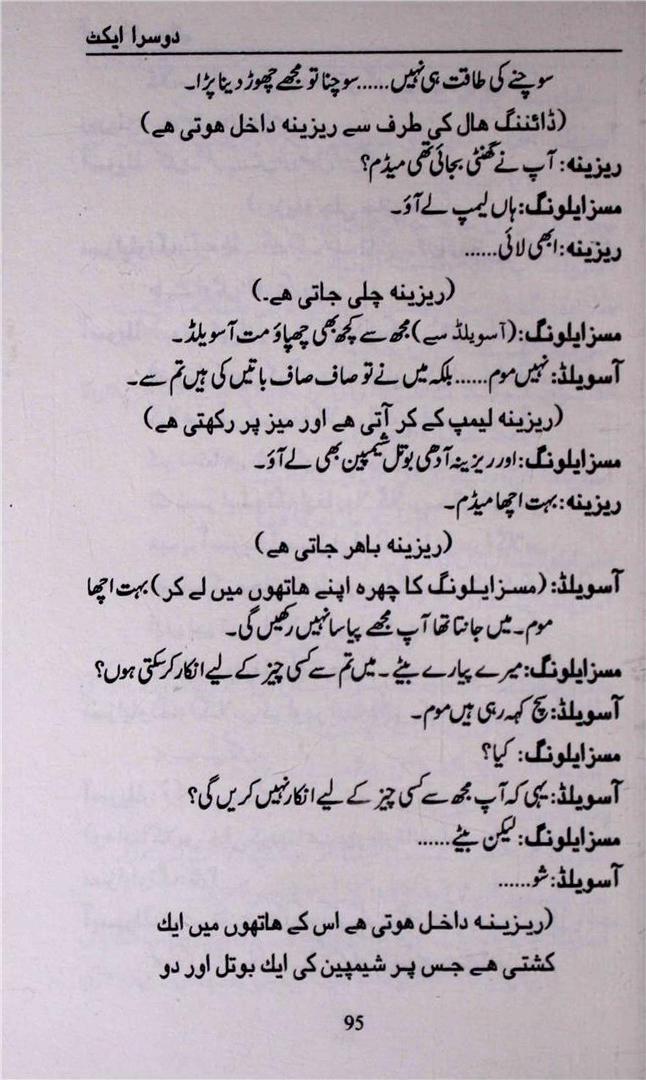 دوسرا ایکٹ
سوچنے کی طاقت ہی نہیں……سوچنا تو مجھے چھوڑ دینا پڑا۔
(ڈائننگ ہال کی طرف سے ریزینہ داخل ہوتی ہے)
ریزینہ: آپ نے گھنٹی بجائی تھی میڈم؟
مسز ایلونگ: ہاں لیمپ لے آؤ۔
ریزینہ: ابھی لائی……
(ریزینہ چلی جاتی ہے۔)
مسز ایلونگ: (آسویلڈ سے) مجھ سے کچھ بھی چھپاؤ مت آسویلڈ۔
آسویلڈ: نہیں موم……بلکہ میں نے تو صاف صاف باتیں کی ہیں تم سے۔
(ریزینہ لیمپ کے کر آتی ہے اور میز پر رکھتی ہے)
مسز ایلونگ: اور ریزینہ آدھی بوتل شیمپین بھی لے آؤ۔
ریزینہ: بہت اچھا میڈم۔
(ریزینہ باہر جاتی ہے)
آسویلڈ: (مسز ایلونگ کا چہرہ اپنے ہاتھوں میں لے کر) بہت اچھا
موم۔ میں جانتا تھا آپ مجھے پیاسا نہیں رکھیں گی۔
مسز ایلونگ: میرے پیارے بیٹے۔ میں تم سے کسی چیز کے لیے انکار کر سکتی ہوں؟
آسویلڈ: سچ کہہ رہی ہیں موم۔
مسز ایلونگ: کیا؟
آسویلڈ: یہی کہ آپ مجھ سے کسی چیز کے لیے انکار نہیں کریں گی؟
مسز ایلونگ: لیکن بیٹے……
آسویلڈ: شو……
(ریزینہ داخل ہوتی ہے اس کے ہاتھوں میں ایک
کشتی ہے جس پر شیمپین کی ایک بوتل اور دو
95